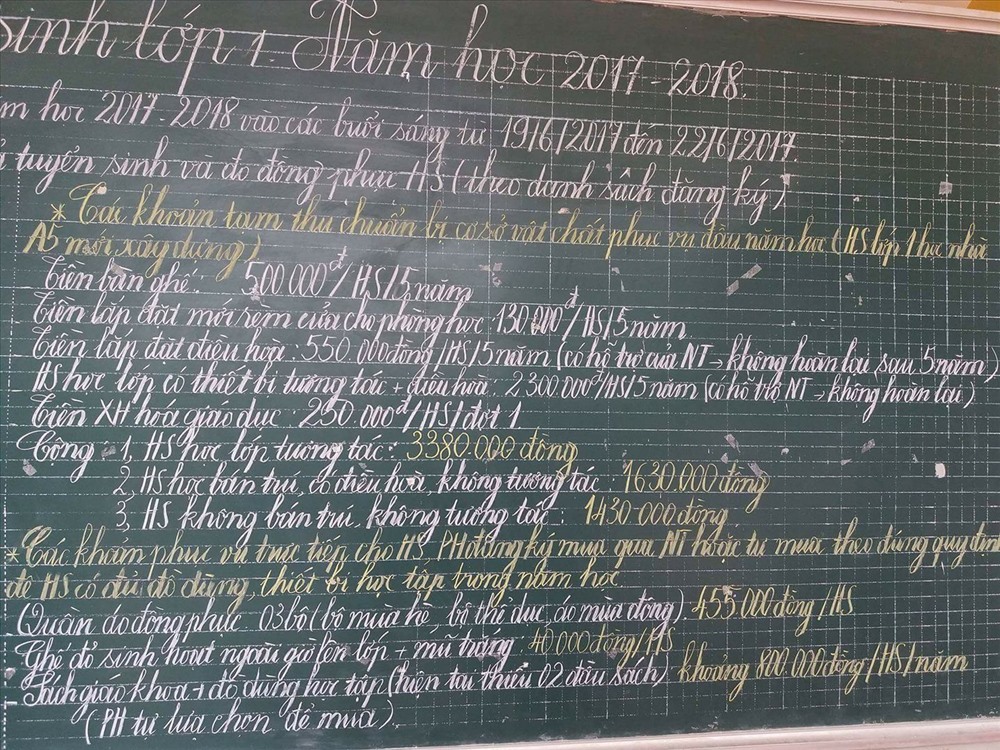 sinh lớp 1. Năm học 2017-2018.
m học 2017-2018 vào các buổi sáng từ 19/6/2017 đến 22/6/2017.
tuyển sinh và đo đồng phục HS (theo danh sách đăng ký).
* Các khoản tạm thu chuẩn bị cơ sở vật chất phục vụ đầu năm học (HS lớp 1 học nhà
A5 mới xây dựng)
Tiền bàn ghế: 500.000đ/HS/5 năm
Tiền lắp đặt mới rèm cửa cho phòng học: 130.000đ/HS/5 năm
Tiền lắp đặt điều hoà: 550.000 đồng/HS/5 năm (có hỗ trợ của NT → không hoàn lại sau 5 năm)
HS học lớp có thiết bị tương tác + điều hoà: 2.300.000đ/HS/5 năm (có hỗ trợ NT → không hoàn lại)
Tiền XH hoá giáo dục: 250.000đ/HS/đợt 1
Cộng: 1, HS học lớp tương tác: 3380.000 đồng
2, HS học bán trú, có điều hoà, không tương tác: 1630.000 đồng
3, HS không bán trú, không tương tác: 1430.000 đồng
* Các khoản phục vụ trực tiếp cho HS, PH đăng ký mua qua NT hoặc tự mua theo đúng quy định
để HS có đủ đồ dùng, thiết bị học tập trong năm học
Quần áo đồng phục 03 bộ (bộ mùa hè, bộ thể dục, áo mùa đông): 455.000 đồng/HS
Ghế đỏ sinh hoạt ngoài giờ lên lớp + mũ trắng: 40.000 đồng/HS
Sách giáo khoa + đồ dùng học tập (hiện tại thiếu 02 đầu sách) khoảng 800.000 đồng/HS/năm
(PH tự lựa chọn để mua).